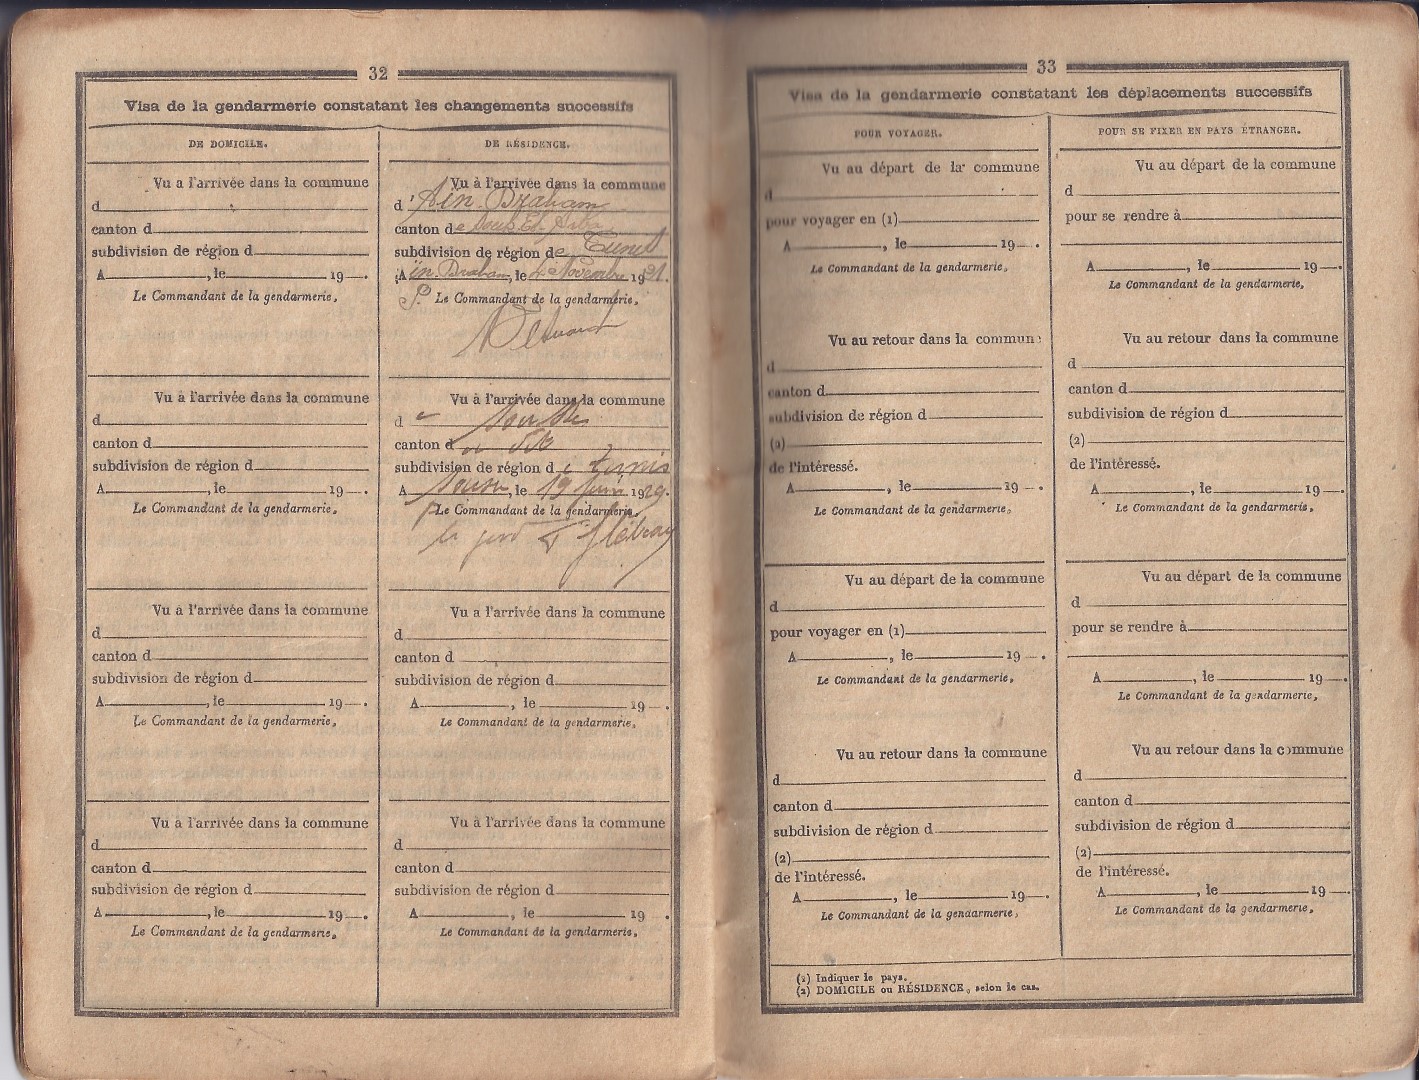 32
Visa de la gendarmerie constatant les changements successifs
DE DOMICILE.
Vu a l'arrivée dans la commune
d
canton d
subdivision de région d
A , le 19 .
Le Commandant de la gendarmerie,
Vu à l'arrivée dans la commune
d
canton d
subdivision de région d
A , le 19 .
Le Commandant de la gendarmerie,
Vu a l'arrivée dans la commune
d
canton d
subdivision de région d
A , le 19 .
Le Commandant de la gendarmerie,
Vu à l'arrivée dans la commune
d
canton d
subdivision de région d
A , le 19 .
Le Commandant de la gendarmerie,
DE RÉSIDENCE.
Vu à l'arrivée dans la commune
d'Aïn-Draham
canton de Souk-El-Arba
subdivision de région de Tunis
Aïn-Draham, le 4 Novembre 1921.
P. Le Commandant de la gendarmerie,
Vu à l'arrivée dans la commune
d e Sousse
canton d
subdivision de région d e Tunis
A Sousse, le 19 Juin 1929.
Le Commandant de la gendarmerie,
le
Vu a l'arrivée dans la commune
d
canton d
subdivision de région d
A , le 19 .
Le Commandant de la gendarmerie,
Vu à l'arrivée dans la commune
d
canton d
subdivision de région d
A , le 19 .
Le Commandant de la gendarmerie,
33
Visa de la gendarmerie constatant les déplacements successifs
POUR VOYAGER.
Vu au départ de la commune
d
pour voyager en (1)
A , le 19 .
Le Commandant de la gendarmerie,
Vu au retour dans la commune
d
canton d
subdivision de région d
(2)
de l'intéressé.
A , le 19 .
Le Commandant de la gendarmerie,
Vu au départ de la commune
d
pour voyager en (1)
A , le 19 .
Le Commandant de la gendarmerie,
Vu au retour dans la commune
d
canton d
subdivision de région d
(2)
de l'intéressé.
A , le 19 .
Le Commandant de la gendarmerie,
POUR SE FIXER EN PAYS ÉTRANGER.
Vu au départ de la commune
d
pour se rendre à
A , le 19 .
Le Commandant de la gendarmerie,
Vu au retour dans la commune
d
canton d
subdivision de région d
(2)
de l'intéressé.
A , le 19 .
Le Commandant de la gendarmerie,
Vu au départ de la commune
d
pour se rendre à
A , le 19 .
Le Commandant de la gendarmerie,
Vu au retour dans la commune
d
canton d
subdivision de région d
(2)
de l'intéressé.
A , le 19 .
Le Commandant de la gendarmerie,
(1) Indiquer le pays.
(2) DOMICILE ou RÉSIDENCE, selon le cas.